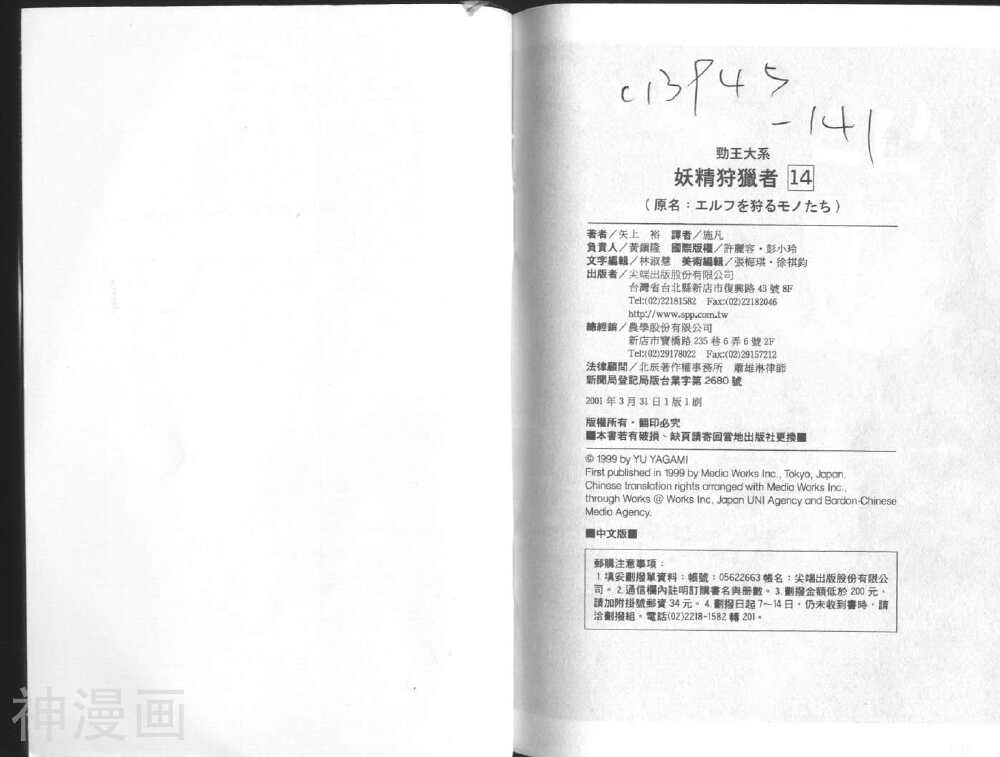 c13945
-141
勁王大系
妖精狩獵者 14
(原名：エルフを狩るモノたち)
著者／矢上 裕 譯者／施凡
負責人／黃鎮隆 國際版權／許麗容・彭小玲
文字編輯／林淑慧 美術編輯／張梅琪・徐祺鈞
出版者／尖端出版股份有限公司
台灣省台北縣新店市復興路 43 號 8F
Tel:(02)22181582 Fax:(02)22182046
http://www.spp.com.tw
總經銷／農學股份有限公司
新店市寶橋路 235 巷 6 弄 6 號 2F
Tel:(02)29178022 Fax:(02)29157212
法律顧問／北辰著作權事務所 蕭雄淋律師
新聞局登記局版台業字第 2680 號
2001 年 3 月 31 日 1 版 1 刷
版權所有・翻印必究
■本書若有破損、缺頁請寄回當地出版社更換■
© 1999 by YU YAGAMI
First published in 1999 by Media Works Inc., Tokyo, Japan.
Chinese translation rights arranged with Media Works Inc.,
through Works @ Works Inc, Japan UNI Agency and Bardon-Chinese
Media Agency.
■中文版■
郵購注意事項：
1.填妥劃撥單資料：帳號：05622663 帳名：尖端出版股份有限公
司。2.通信欄內註明訂購書名與冊數。3.劃撥金額低於 200 元，
請加附掛號郵資 34 元。4.劃撥日起 7～14 日，仍未收到書時，請
洽劃撥組。電話(02)2218-1582 轉 201。
神漫画